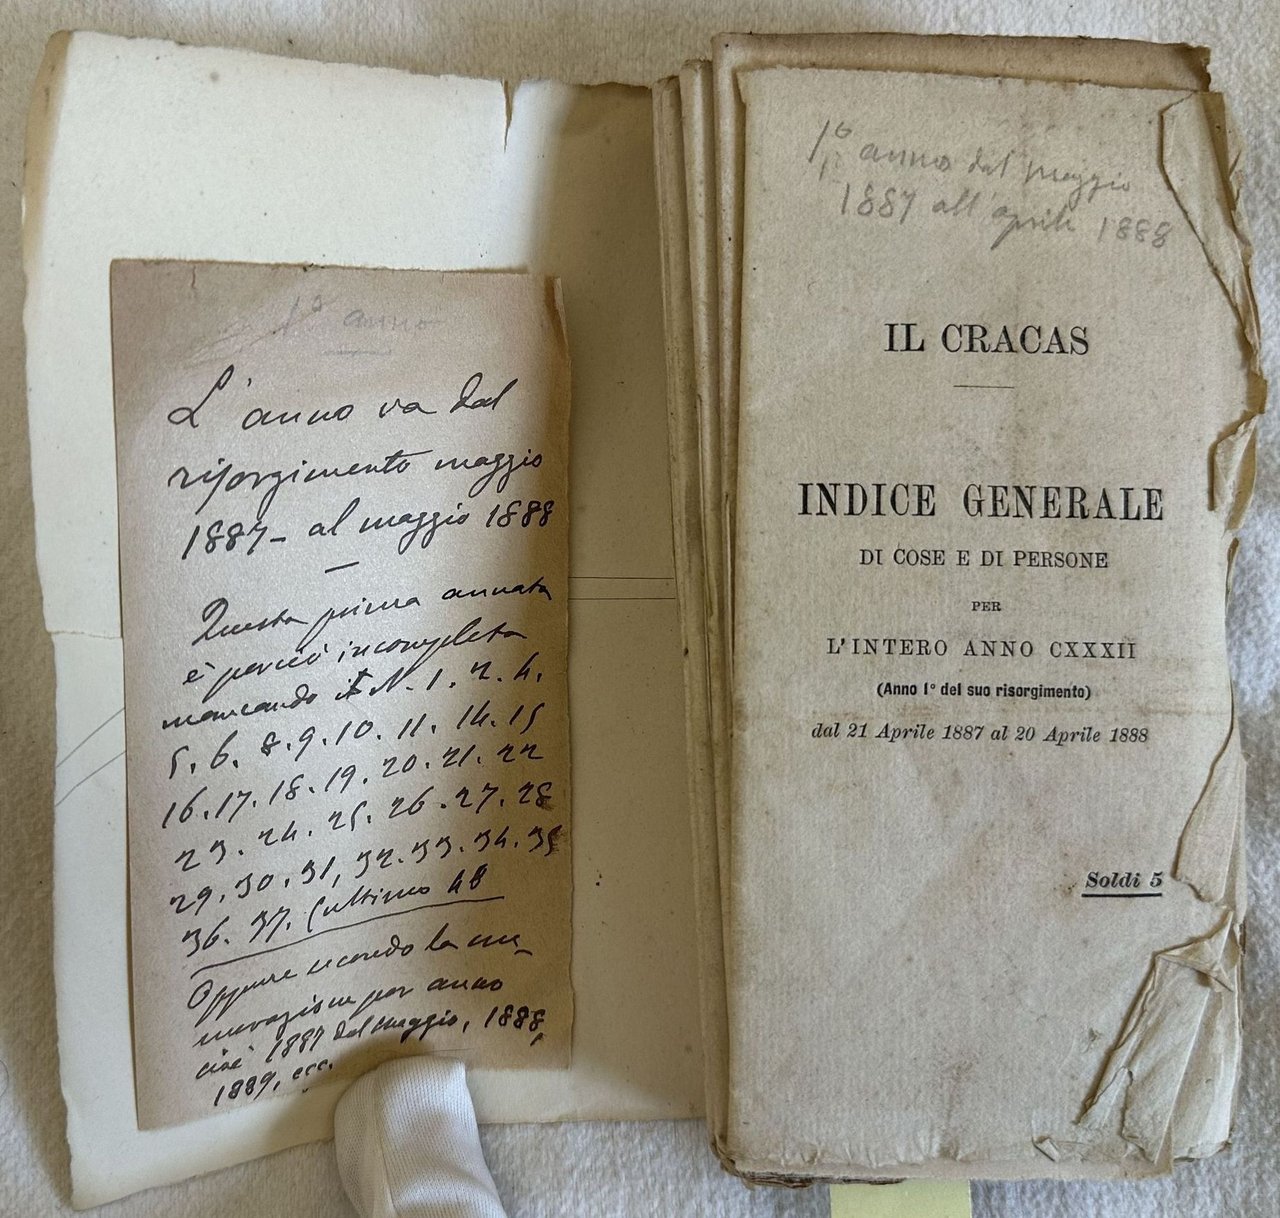 1° anno
L'anno va dal
risorgimento maggio
1887 - al maggio 1888
Questa prima annata
è perciò incompleta
mancando il N. 1. 2. 4.
5. 6. 8. 9. 10. 11. 14. 15
16. 17. 18. 19. 20. 21. 22
23. 24. 25. 26. 27. 28
29. 30. 31, 32. 33. 34. 35
36. 37. (ultimo 48
Oppure secondo la nu-
merazione per anno
cioè 1887 dal maggio, 1888,
1889, ecc.
1° anno dal maggio
1887 all'aprile 1888
IL CRACAS
INDICE GENERALE
DI COSE E DI PERSONE
PER
L'INTERO ANNO CXXXII
(Anno I° del suo risorgimento)
dal 21 Aprile 1887 al 20 Aprile 1888
Soldi 5